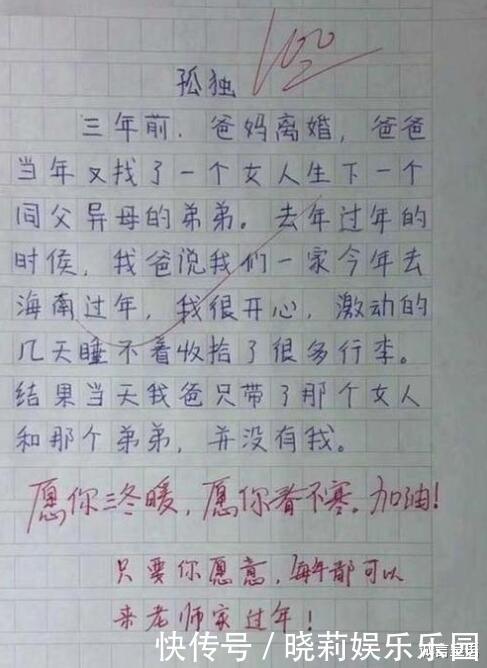 100
孤独
三年前，爸妈离婚，爸爸
当年又找了一个女人生下一个
同父异母的弟弟。去年过年的
时候，我爸说我们一家今年去
海南过年，我很开心，激动的
几天睡不着收拾了很多行李。
结果当天我爸只带了那个女人
和那个弟弟，并没有我。
愿你三冬暖，愿你春不寒。加油！
只要你愿意，每年都可以
来老师家过年！
快传号／晓莉娱乐乐园